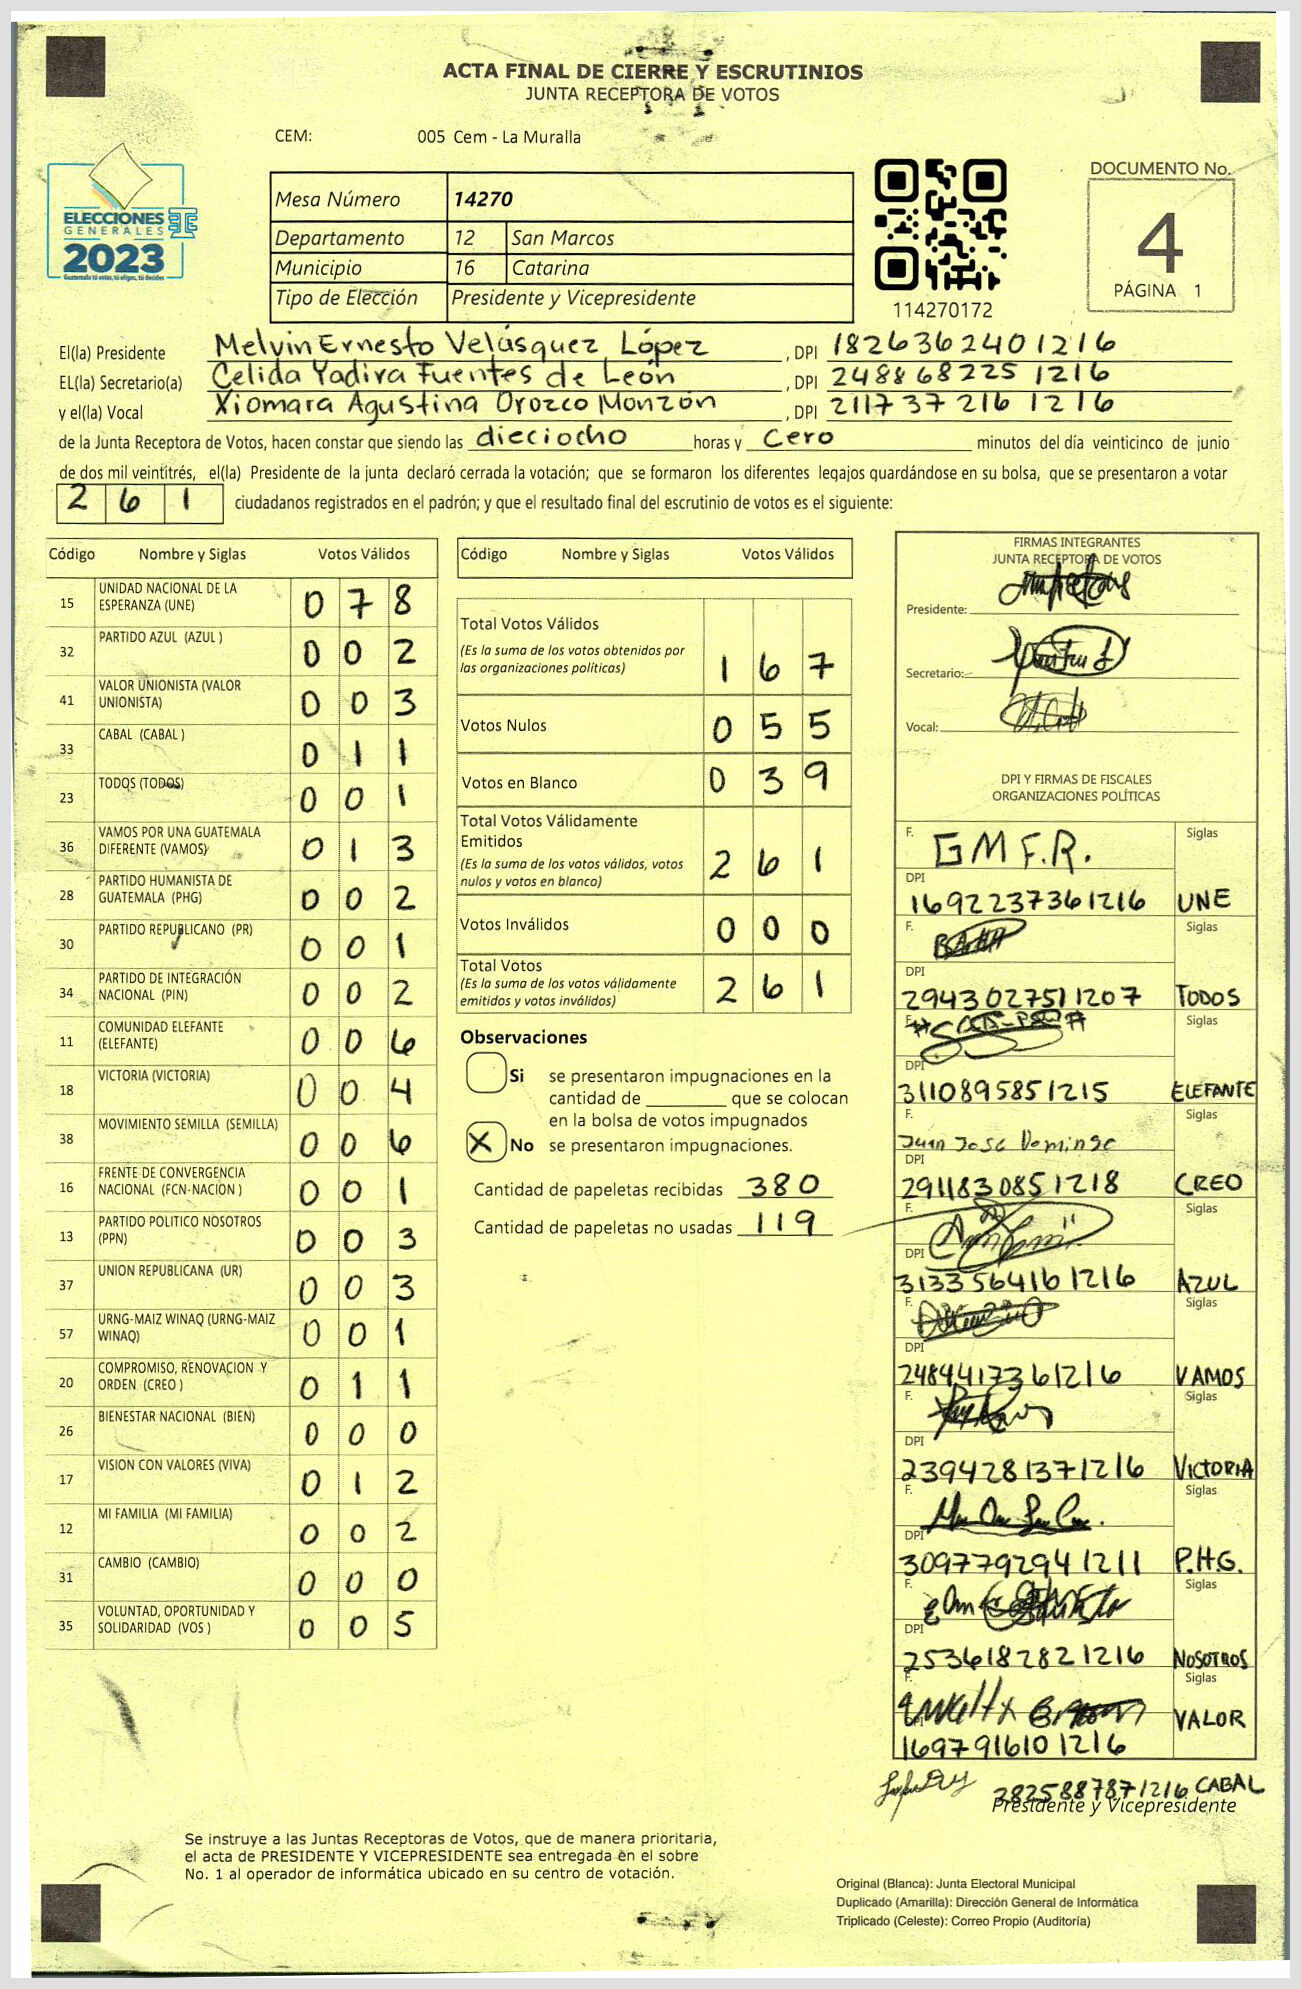 ACTA FINAL DE CIERRE Y ESCRUTINIOS
JUNTA RECEPTORA DE VOTOS
CEM: 005 Cem - La Muralla
ELECCIONES
GENERALES
2023
Guatemala tú votas, tú eliges, tú decides
Mesa Número 14270
Departamento 12 San Marcos
Municipio 16 Catarina
Tipo de Elección Presidente y Vicepresidente
114270172
DOCUMENTO No.
4
PÁGINA 1
El(la) Presidente Melvin Ernesto Velásquez López , DPI 1826362401216
EL(la) Secretario(a) Celida Yadira Fuentes de León , DPI 2488682251216
y el(la) Vocal Xiomara Agustina Orozco Monzón , DPI 2117372161216
de la Junta Receptora de Votos, hacen constar que siendo las dieciocho horas y cero minutos del día veinticinco de junio
de dos mil veintitrés, el(la) Presidente de la junta declaró cerrada la votación; que se formaron los diferentes legajos quardándose en su bolsa, que se presentaron a votar
2 6 1 ciudadanos registrados en el padrón; y que el resultado final del escrutinio de votos es el siguiente:
Código Nombre y Siglas Votos Válidos
15 UNIDAD NACIONAL DE LA ESPERANZA (UNE) 0 7 8
32 PARTIDO AZUL (AZUL ) 0 0 2
41 VALOR UNIONISTA (VALOR UNIONISTA) 0 0 3
33 CABAL (CABAL ) 0 1 1
23 TODOS (TODOS) 0 0 1
36 VAMOS POR UNA GUATEMALA DIFERENTE (VAMOS) 0 1 3
28 PARTIDO HUMANISTA DE GUATEMALA (PHG) 0 0 2
30 PARTIDO REPUBLICANO (PR) 0 0 1
34 PARTIDO DE INTEGRACIÓN NACIONAL (PIN) 0 0 2
11 COMUNIDAD ELEFANTE (ELEFANTE) 0 0 6
18 VICTORIA (VICTORIA) 0 0 4
38 MOVIMIENTO SEMILLA (SEMILLA) 0 0 6
16 FRENTE DE CONVERGENCIA NACIONAL (FCN-NACION ) 0 0 1
13 PARTIDO POLITICO NOSOTROS (PPN) 0 0 3
37 UNION REPUBLICANA (UR) 0 0 3
57 URNG-MAIZ WINAQ (URNG-MAIZ WINAQ) 0 0 1
20 COMPROMISO, RENOVACION Y ORDEN (CREO ) 0 1 1
26 BIENESTAR NACIONAL (BIEN) 0 0 0
17 VISION CON VALORES (VIVA) 0 1 2
12 MI FAMILIA (MI FAMILIA) 0 0 2
31 CAMBIO (CAMBIO) 0 0 0
35 VOLUNTAD, OPORTUNIDAD Y SOLIDARIDAD (VOS ) 0 0 5
Código Nombre y Siglas Votos Válidos
Total Votos Válidos
(Es la suma de los votos obtenidos por
las organizaciones políticas) 1 6 7
Votos Nulos 0 5 5
Votos en Blanco 0 3 9
Total Votos Válidamente
Emitidos
(Es la suma de los votos válidos, votos
nulos y votos en blanco) 2 6 1
Votos Inválidos 0 0 0
Total Votos
(Es la suma de los votos válidamente
emitidos y votos inválidos) 2 6 1
Observaciones
Si se presentaron impugnaciones en la
cantidad de ________ que se colocan
en la bolsa de votos impugnados
X No se presentaron impugnaciones.
Cantidad de papeletas recibidas 380
Cantidad de papeletas no usadas 119
FIRMAS INTEGRANTES
JUNTA RECEPTORA DE VOTOS
Presidente:
Secretario:
Vocal:
DPI Y FIRMAS DE FISCALES
ORGANIZACIONES POLÍTICAS
F. GMF.R. Siglas
DPI
1692237361216 UNE
F. Siglas
DPI
2943027511207 TODOS
F. Siglas
DPI
3110895851215 ELEFANTE
F. Siglas
Juan Jose Domingo
DPI
2911830851218 CREO
F. Siglas
DPI
3133564161216 AZUL
F. Siglas
DPI
2484417361216 VAMOS
F. Siglas
DPI
2394281371216 VICTORIA
F. Siglas
DPI
3097792941211 P.H.G.
F. Siglas
DPI
2536182821216 NOSOTROS
F. Siglas
DPI VALOR
1697916101216
2825887871216 CABAL
Presidente y Vicepresidente
Se instruye a las Juntas Receptoras de Votos, que de manera prioritaria,
el acta de PRESIDENTE Y VICEPRESIDENTE sea entregada en el sobre
No. 1 al operador de informática ubicado en su centro de votación.
Original (Blanca): Junta Electoral Municipal
Duplicado (Amarilla): Dirección General de Informática
Triplicado (Celeste): Correo Propio (Auditoría)